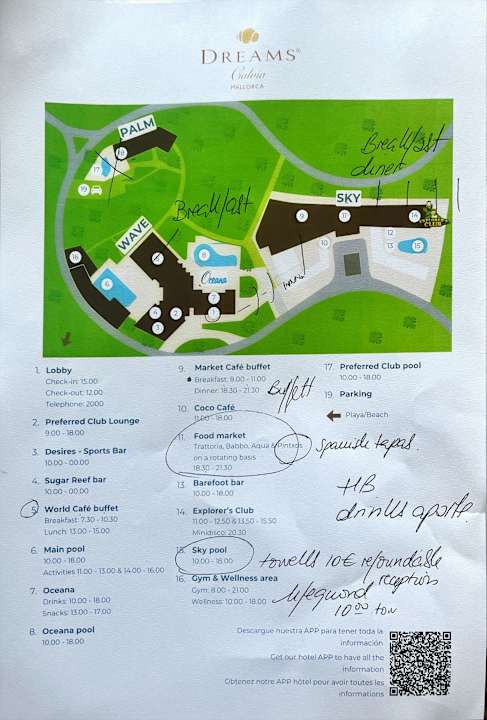 DREAMS
Calvia
MALLORCA
PALM
WAVE
SKY
Oceana
Breakfast
Breakfast
diner
1. Lobby
Check-in: 15.00
Check-out: 12.00
Telephone: 2000
2. Preferred Club Lounge
9.00 - 18.00
3. Desires - Sports Bar
10.00 - 00.00
4. Sugar Reef bar
10.00 - 00.00
5. World Café buffet
Breakfast: 7.30 - 10.30
Lunch: 13.00 - 15.00
6. Main pool
10.00 - 18.00
Activities 11.00 - 13.00 & 14.00 - 16.00
7. Oceana
Drinks: 10.00 - 18.00
Snacks: 13.00 - 17.00
8. Oceana pool
10.00 - 18.00
9. Market Café buffet
Breakfast: 8.00 - 11.00
Dinner: 18.30 - 21.30
Buffett
10. Coco Café
11.00 - 18.00
11. Food market
Trattoria, Babbo, Aqua & Pintxos
on a rotating basis
18.30 - 21.30
Spanish tapas.
13. Barefoot bar
10.00 - 18.00
14. Explorer's Club
11.00 - 12.50 & 13.50 - 15.50
Minidisco: 20.30
15. Sky pool
10.00 - 18.00
towells 10€ refoundable
reception
16. Gym & Wellness area
Gym: 8.00 - 21.00
Wellness: 10.00 - 18.00
lifeguord
10:00
17. Preferred Club pool
10.00 - 18.00
19. Parking
Playa/Beach
HB
drinks aparte.
Descargue nuestra APP para tener toda la
información
Get our hotel APP to have all the
information
Obtenez notre APP hôtel pour avoir toutes les
informations